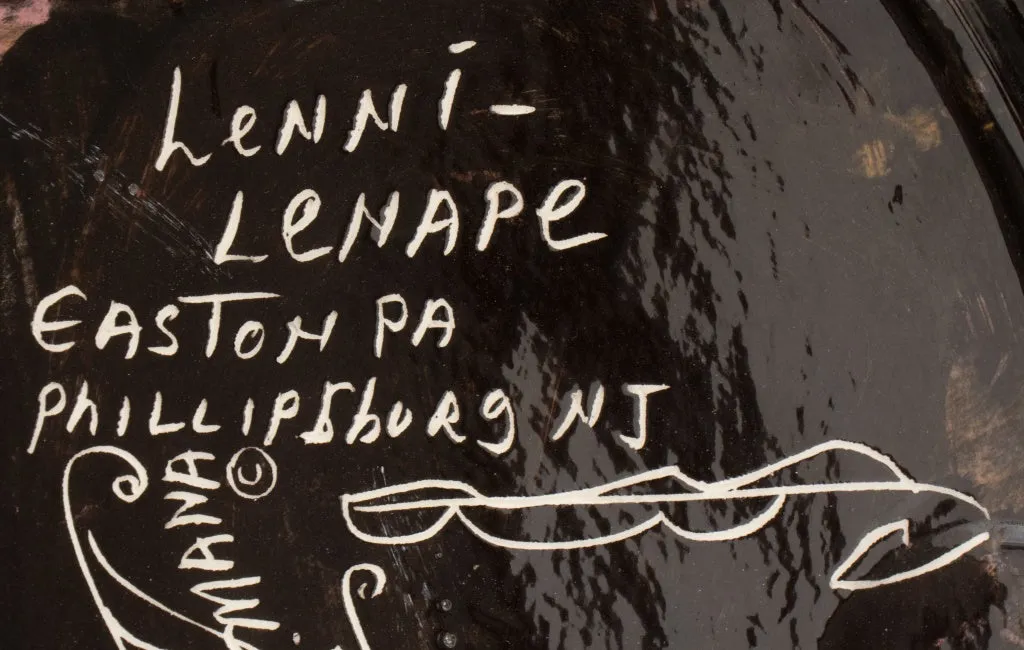 LeNNi-
LeNAPe
EASTON PA
PhiLLIPSbURg NJ
©